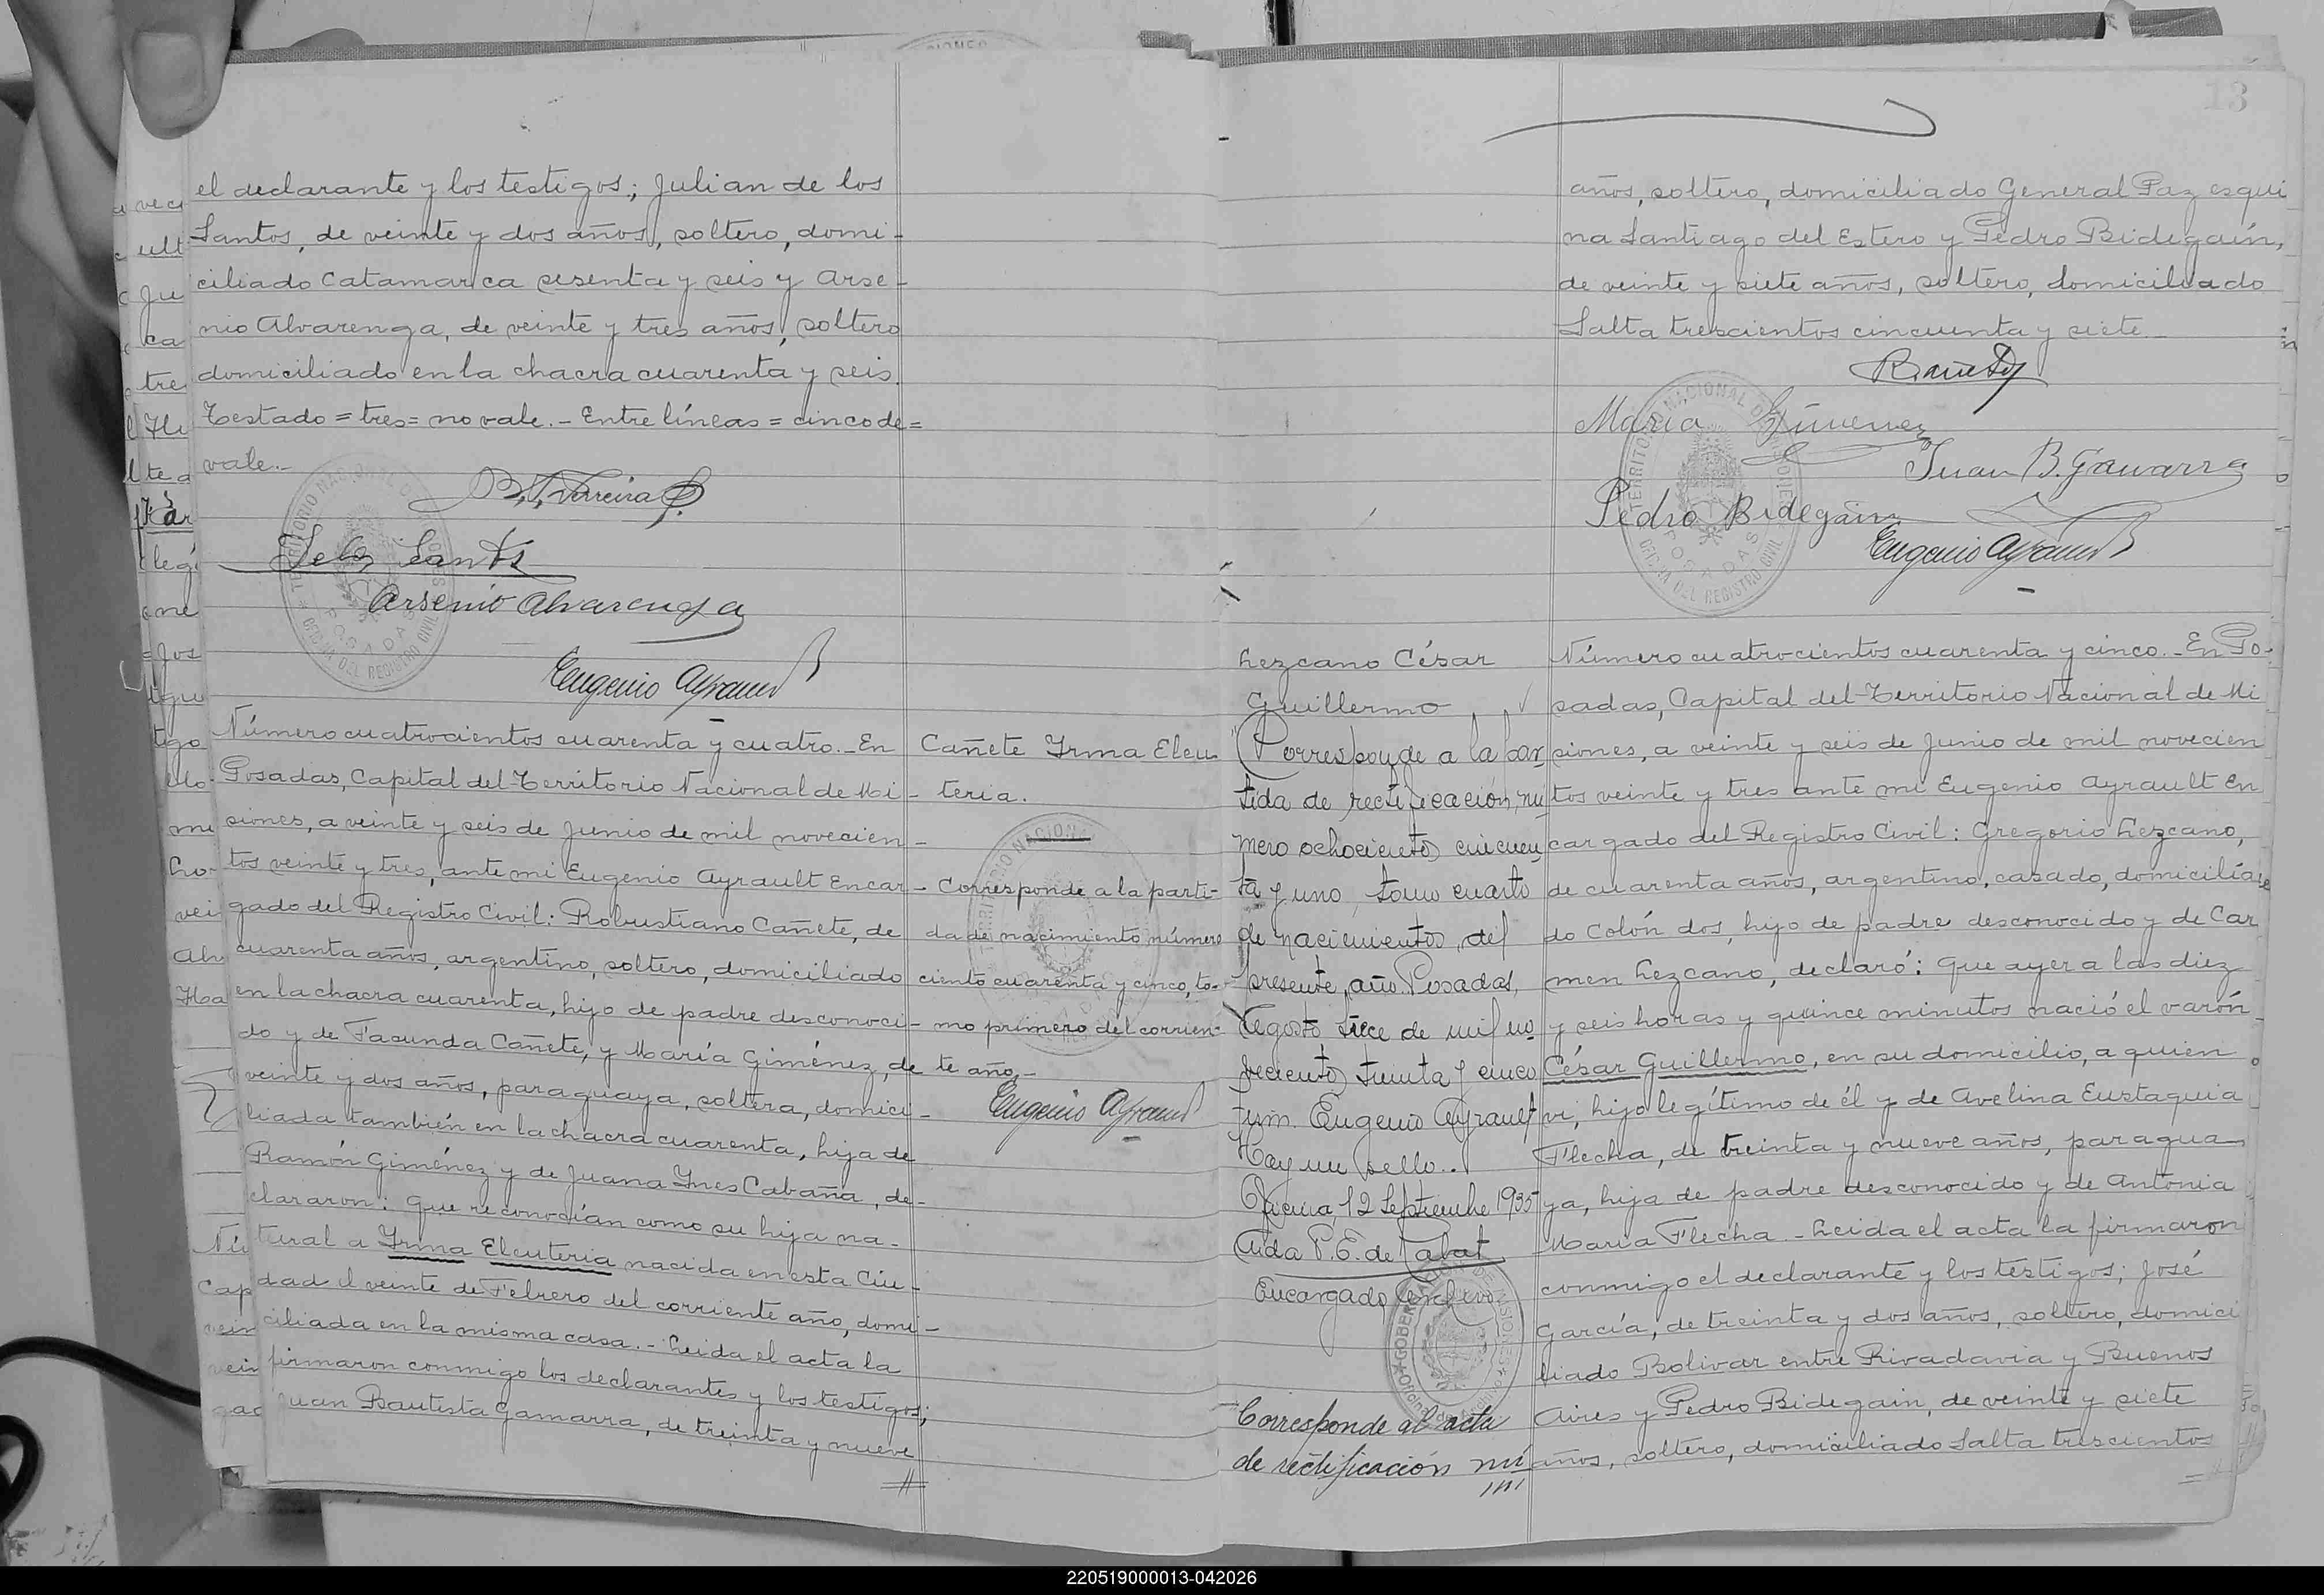 el declarante y los testigos; Julian de los
Santos, de veinte y dos años, soltero, domi-
ciliado Catamarca sesenta y seis y Arse-
nio Alvarenga, de veinte y tres años, soltero
domiciliado en la chacra cuarenta y seis.
Testado = tres = no vale. - Entre líneas = cinco de =
vale. -
Arsenio Alvarenga
Eugenio Ayrault
Número cuatrocientos cuarenta y cuatro. - En
Posadas, Capital del Territorio Nacional de Mi-
siones, a veinte y seis de Junio de mil novecien-
tos veinte y tres, ante mi Eugenio Ayrault Encar-
gado del Registro Civil: Robustiano Cañete, de
cuarenta años, argentino, soltero, domiciliado
en la chacra cuarenta, hijo de padre desconoci-
do y de Facunda Cañete, y María Giménez, de
veinte y dos años, paraguaya, soltera, domici-
liada también en la chacra cuarenta, hija de
Ramón Giménez y de Juana Ynes Cabaña, de-
clararon: Que reconocían como su hija na-
tural a Yrma Eleuteria nacida en esta Ciu-
dad el veinte de Febrero del corriente año, domi-
ciliada en la misma casa. - Leida el acta la
firmaron conmigo los declarantes y los testigos;
Juan Bautista Gamarra, de treinta y nueve
Cañete Yrma Eleu-
teria.
Corresponde a la parti-
da de nacimiento número
ciento cuarenta y cinco, to-
mo primero del corrien-
te año. -
Eugenio Ayrault
13
años, soltero, domiciliado General Paz esqui
na Santiago del Estero y Pedro Bidegain,
de veinte y siete años, soltero, domiciliado
Salta trescientos cincuenta y siete. -
R. Cañete
María Gimenez
Juan B. Gamarra
Pedro Bidegain
Eugenio Ayrault
Lezcano César
Guillermo
Corresponde a la par-
tida de rectificación, nú-
mero ochocientos cincuen
ta y uno, tomo cuarto
de nacimientos, del
presente, año. Posadas,
Agosto trece de mil no-
vecientos treinta y cinco
Firm. Eugenio Ayrault
Hay un sello..
Oficina, 12 Septiembre 1935
Aida P. E. de Labat
Encargado Archivo
Corresponde al acta
de rectificación nú
Número cuatrocientos cuarenta y cinco. - En Po-
sadas, Capital del Territorio Nacional de Mi
siones, a veinte y seis de Junio de mil novecien
tos veinte y tres ante mi Eugenio Ayrault En
cargado del Registro Civil: Gregorio Lezcano,
de cuarenta años, argentino, casado, domicilia
do Colón dos, hijo de padre desconocido y de Car
men Lezcano, declaró: Que ayer a las diez
y seis horas y quince minutos nació el varón
César Guillermo, en su domicilio, a quien
vi, hijo legítimo de él y de Avelina Eustaquia
Flecha, de treinta y nueve años, paragua
ya, hija de padre desconocido y de Antonia
María Flecha. - Leida el acta la firmaron
conmigo el declarante y los testigos; José
García, de treinta y dos años, soltero, domici
liado Bolivar entre Rivadavia y Buenos
Aires y Pedro Bidegain, de veinte y siete
años, soltero, domiciliado Salta trescientos
220519000013-042026